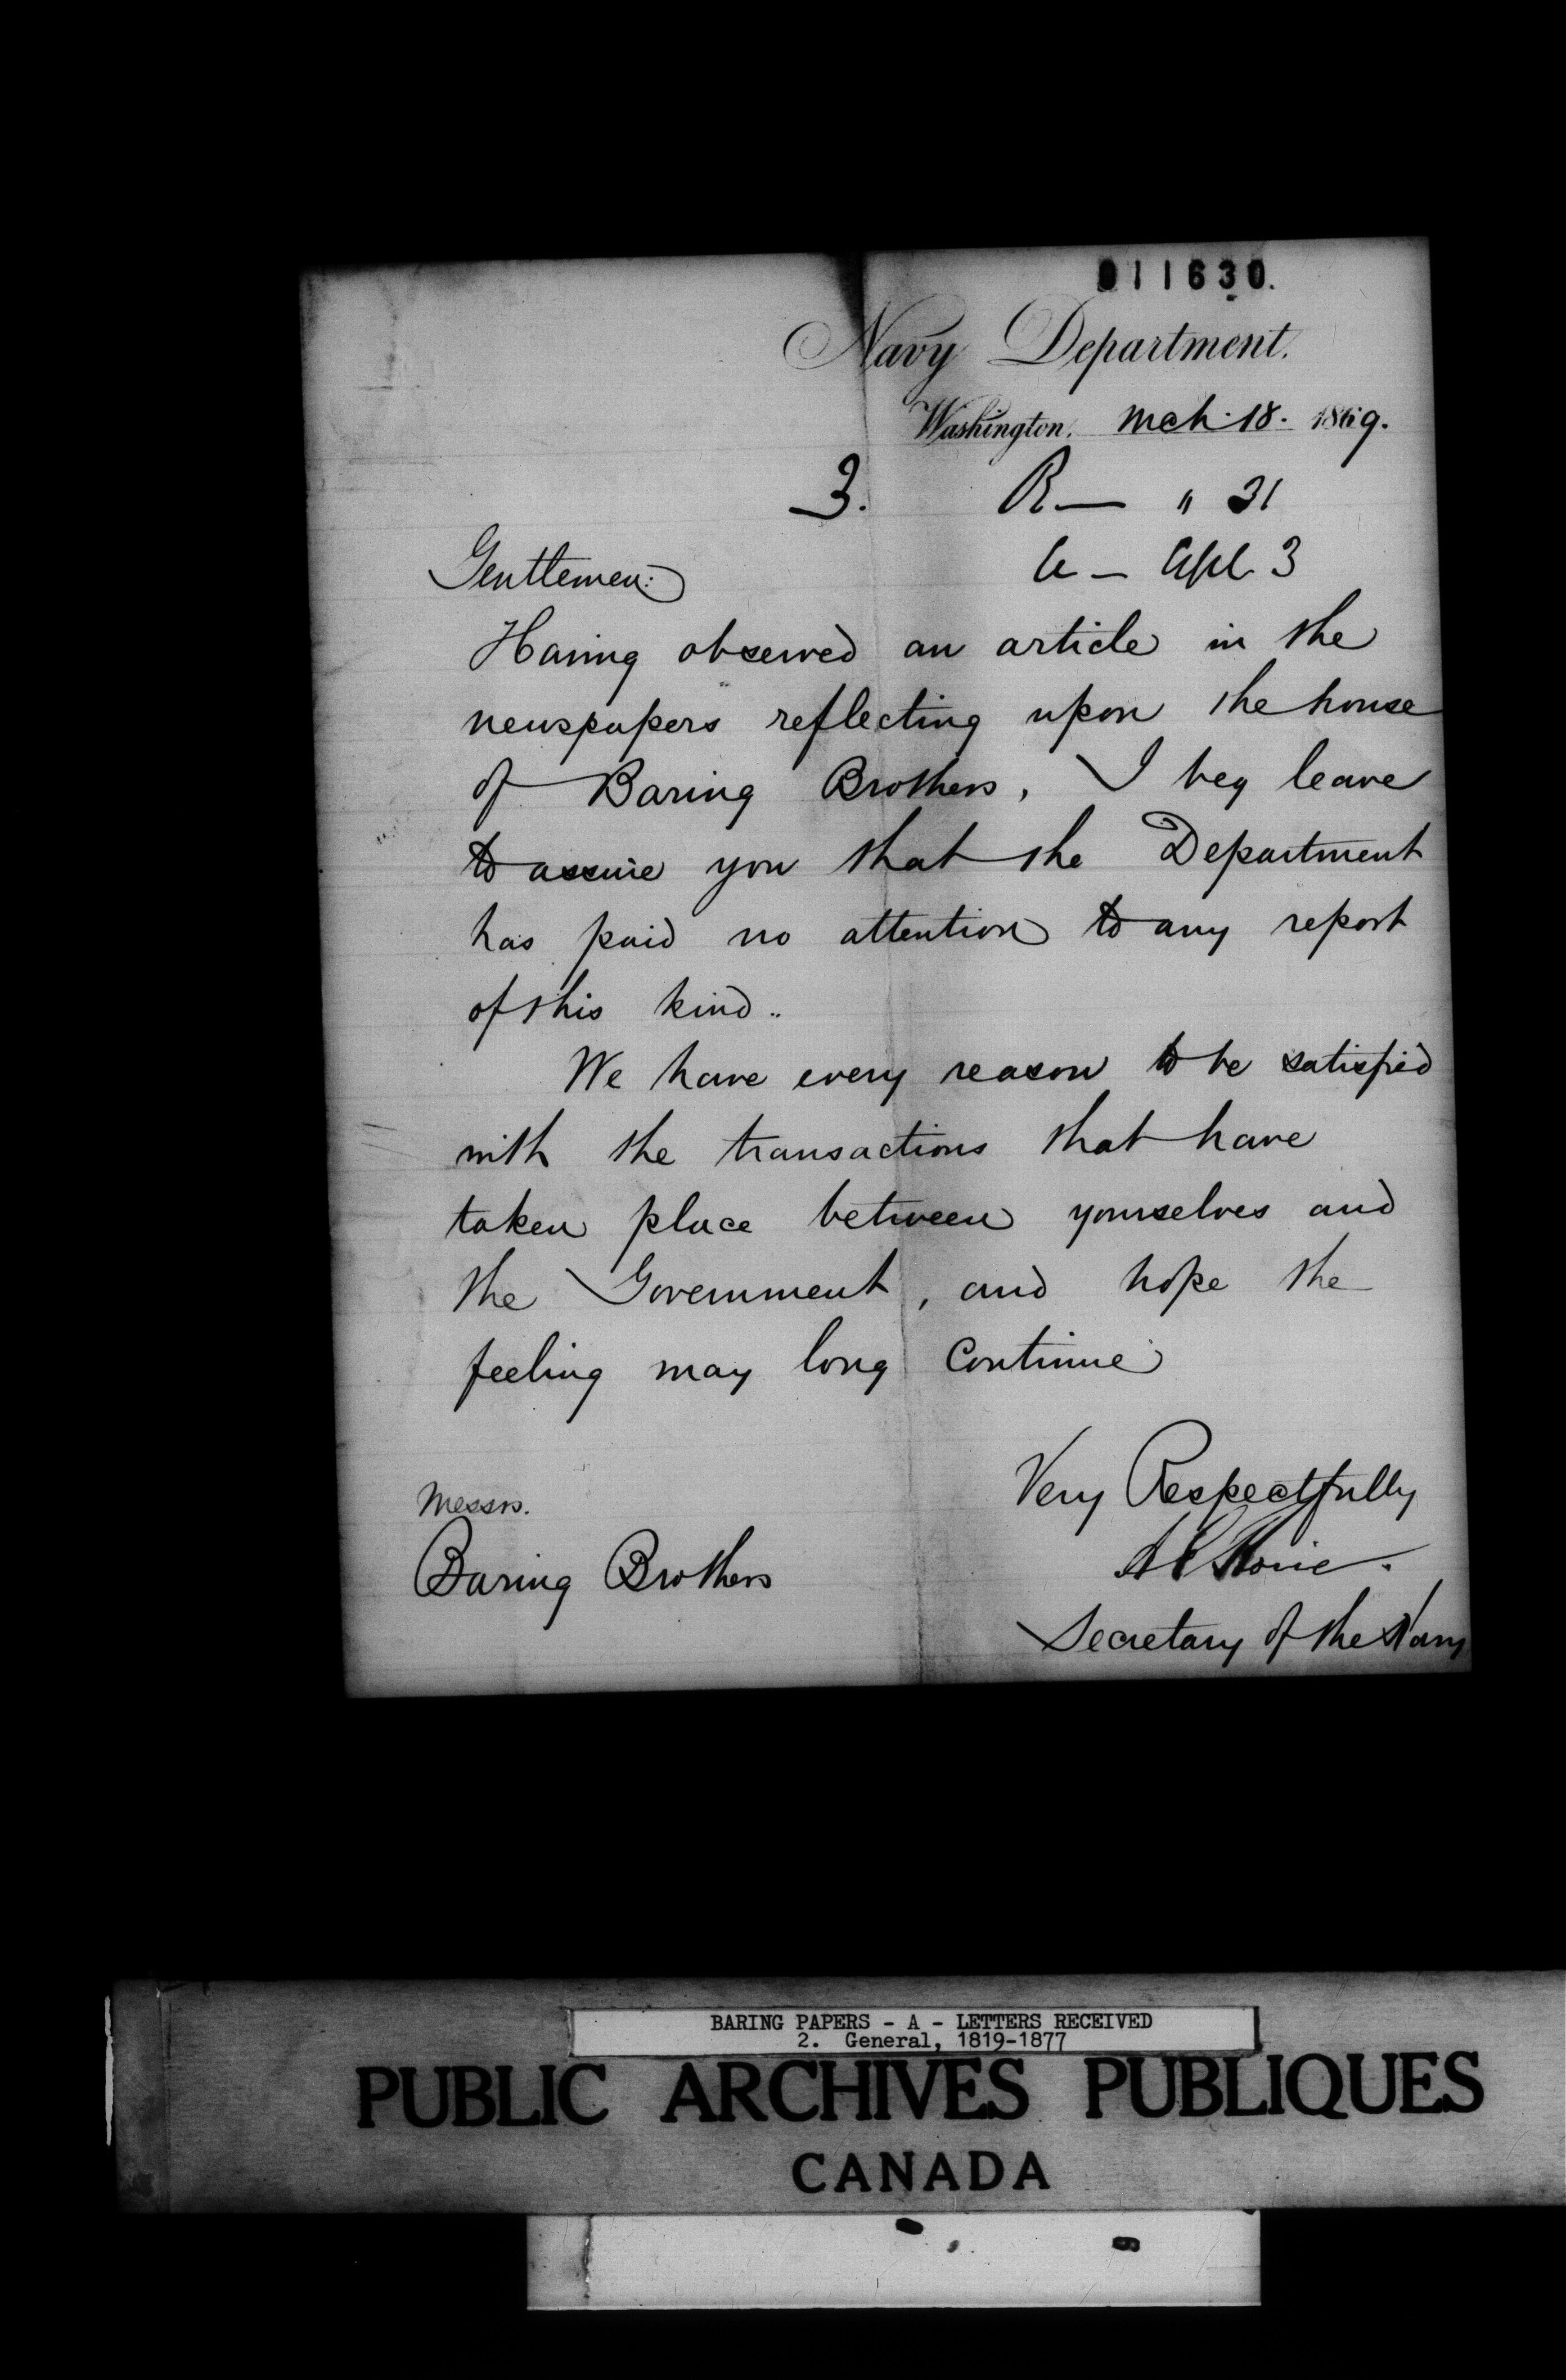 011630.
Navy Department.
Washington. Mch. 18. 1869.
3. R— " 31
A— Apl 3
Gentlemen:
Having observed an article in the
newspapers reflecting upon the house
of Baring Brothers, I beg leave
to assure you that the Department
has paid no attention to any report
of this kind..
We have every reason to be satisfied
with the transactions that have
taken place between yourselves and
the Government, and hope the
feeling may long continue
Very Respectfully
Messrs.
A E Borie.
Baring Brothers
Secretary of the Navy
BARING PAPERS - A - LETTERS RECEIVED
2. General, 1819-1877
PUBLIC ARCHIVES PUBLIQUES
CANADA